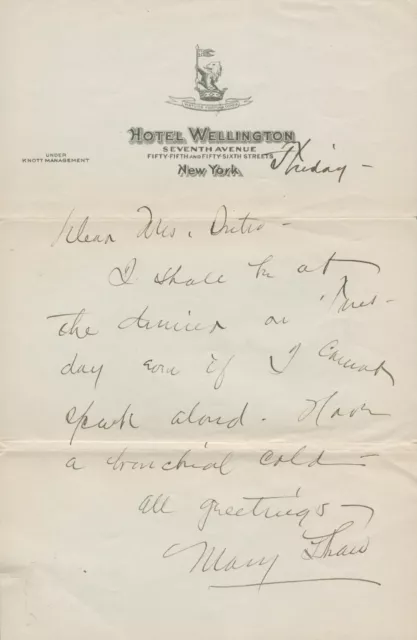 HOTEL WELLINGTON
SEVENTH AVENUE
FIFTY-FIFTH AND FIFTY-SIXTH STREETS
UNDER
KNOTT MANAGEMENT
New York
Friday —
Dear Mrs.
I shall be at
the dinner on Tues-
day even if I cannot
speak aloud. Have
a bronchial cold —
all greetings —
Mary Shaw